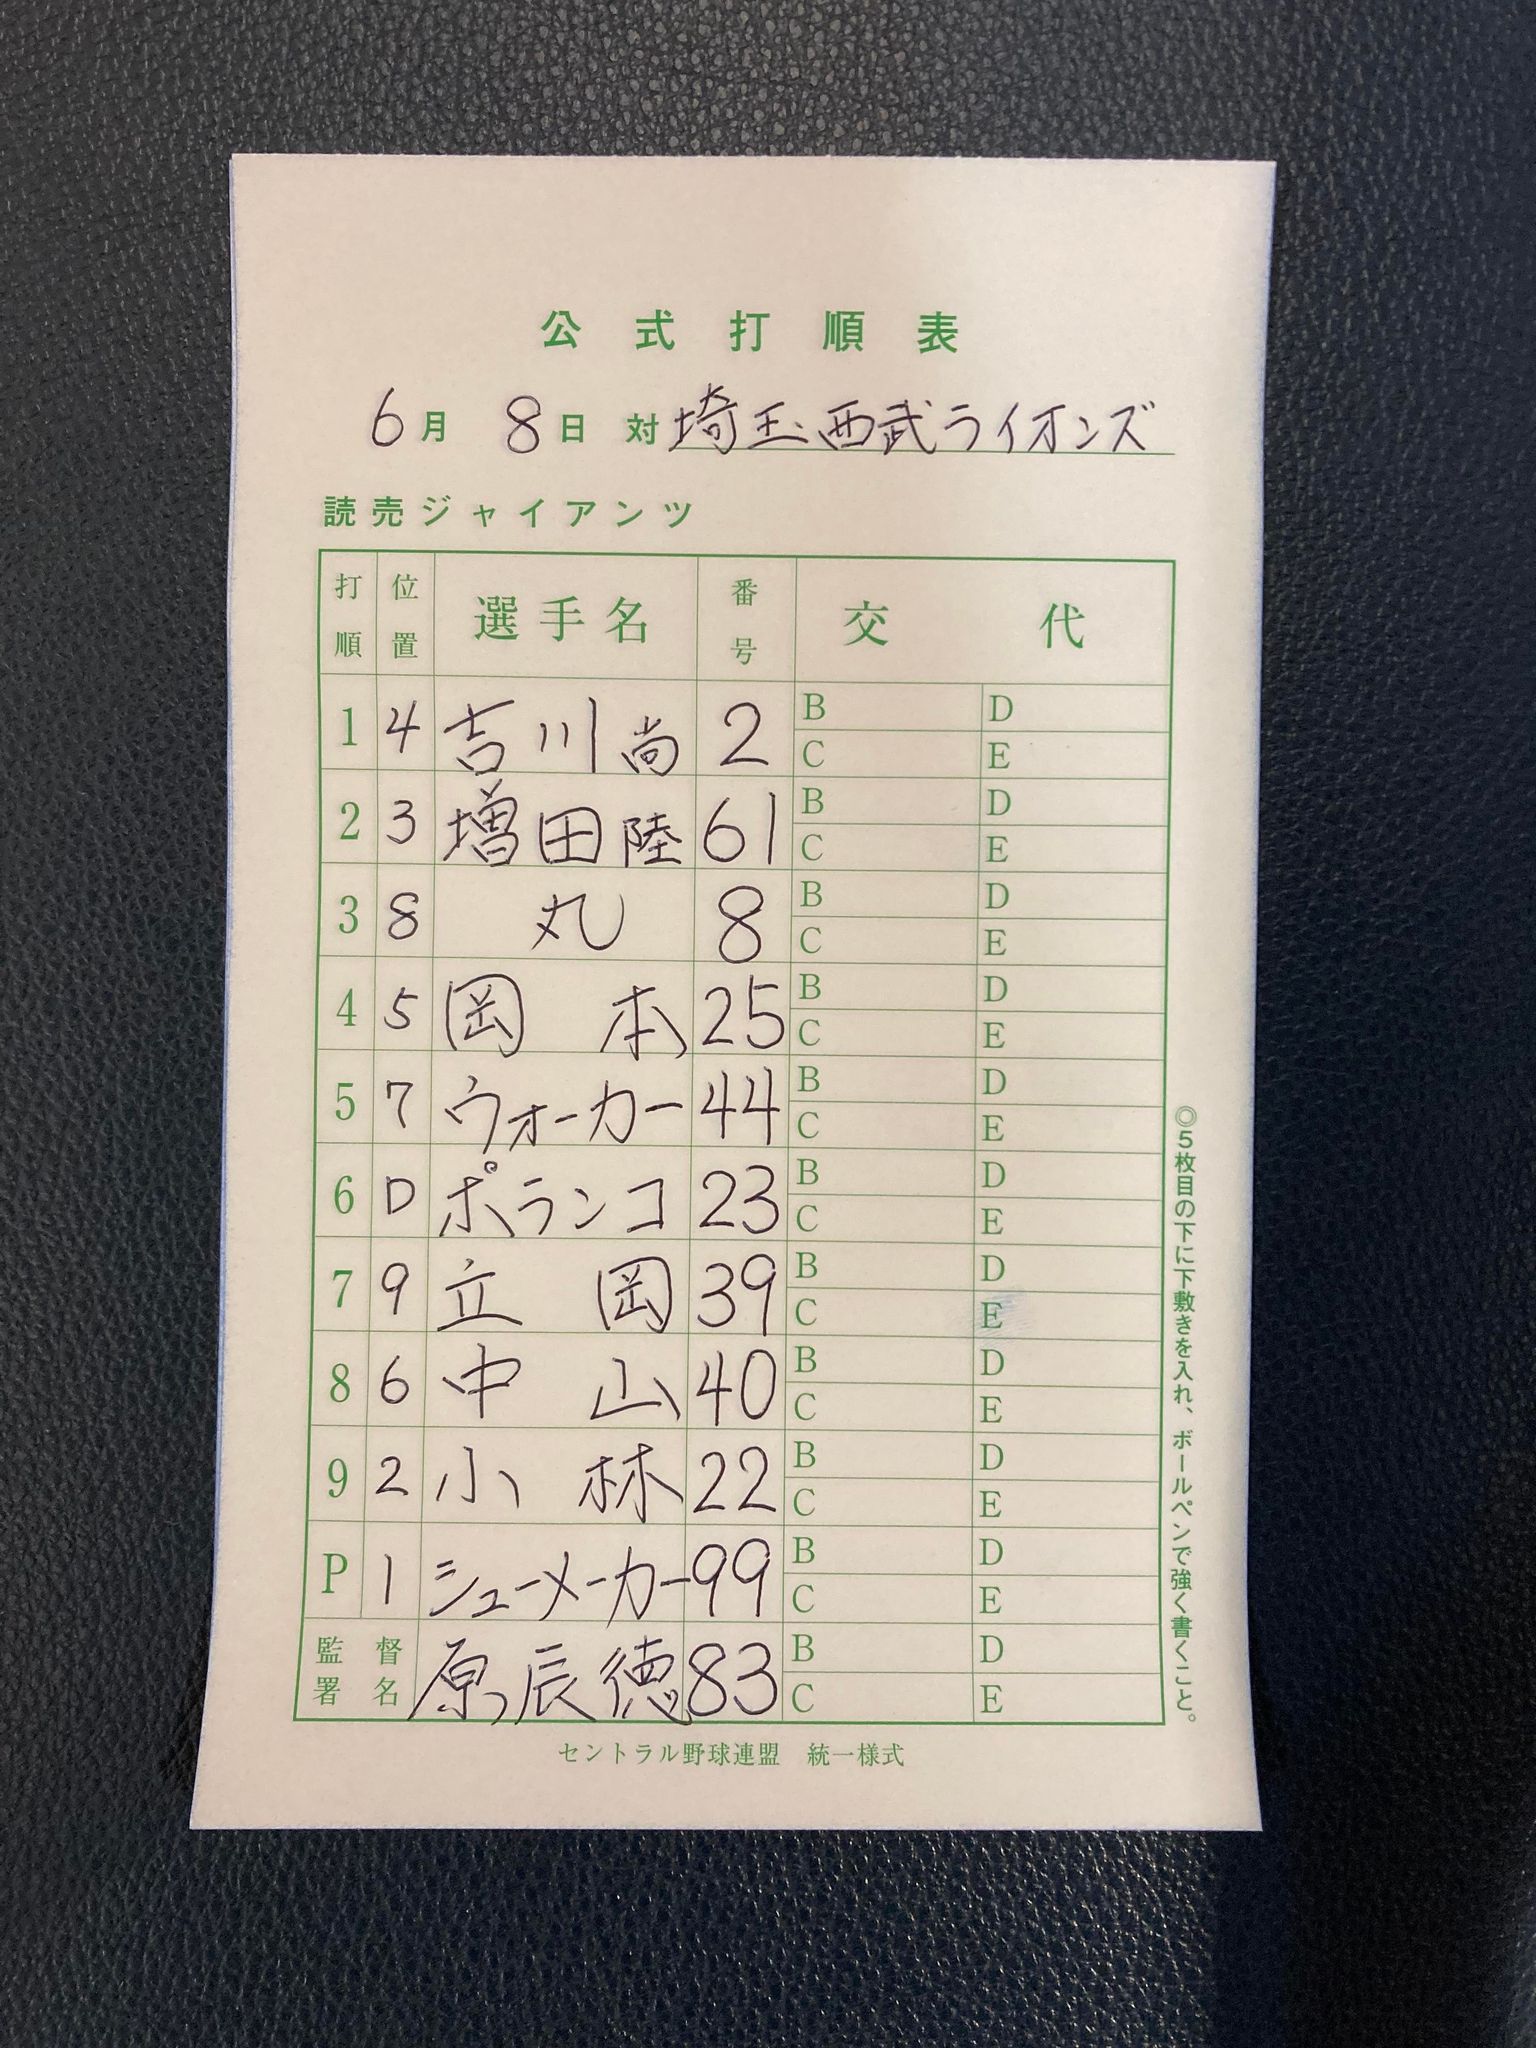 公式打順表
6月 8日 対 埼玉西武ライオンズ
読売ジャイアンツ
打順 位置 選手名 番号 交代
1 4 吉川尚 2 B D C E
2 3 増田陸 61 B D C E
3 8 丸 8 B D C E
4 5 岡本 25 B D C E
5 7 ウォーカー 44 B D C E
6 D ポランコ 23 B D C E
7 9 立岡 39 B D C E
8 6 中山 40 B D C E
9 2 小林 22 B D C E
P 1 シューメーカー 99 B D C E
監督署名 原辰徳 83 B D C E
セントラル野球連盟 統一様式
◎5枚目の下に下敷きを入れ、ボールペンで強く書くこと。